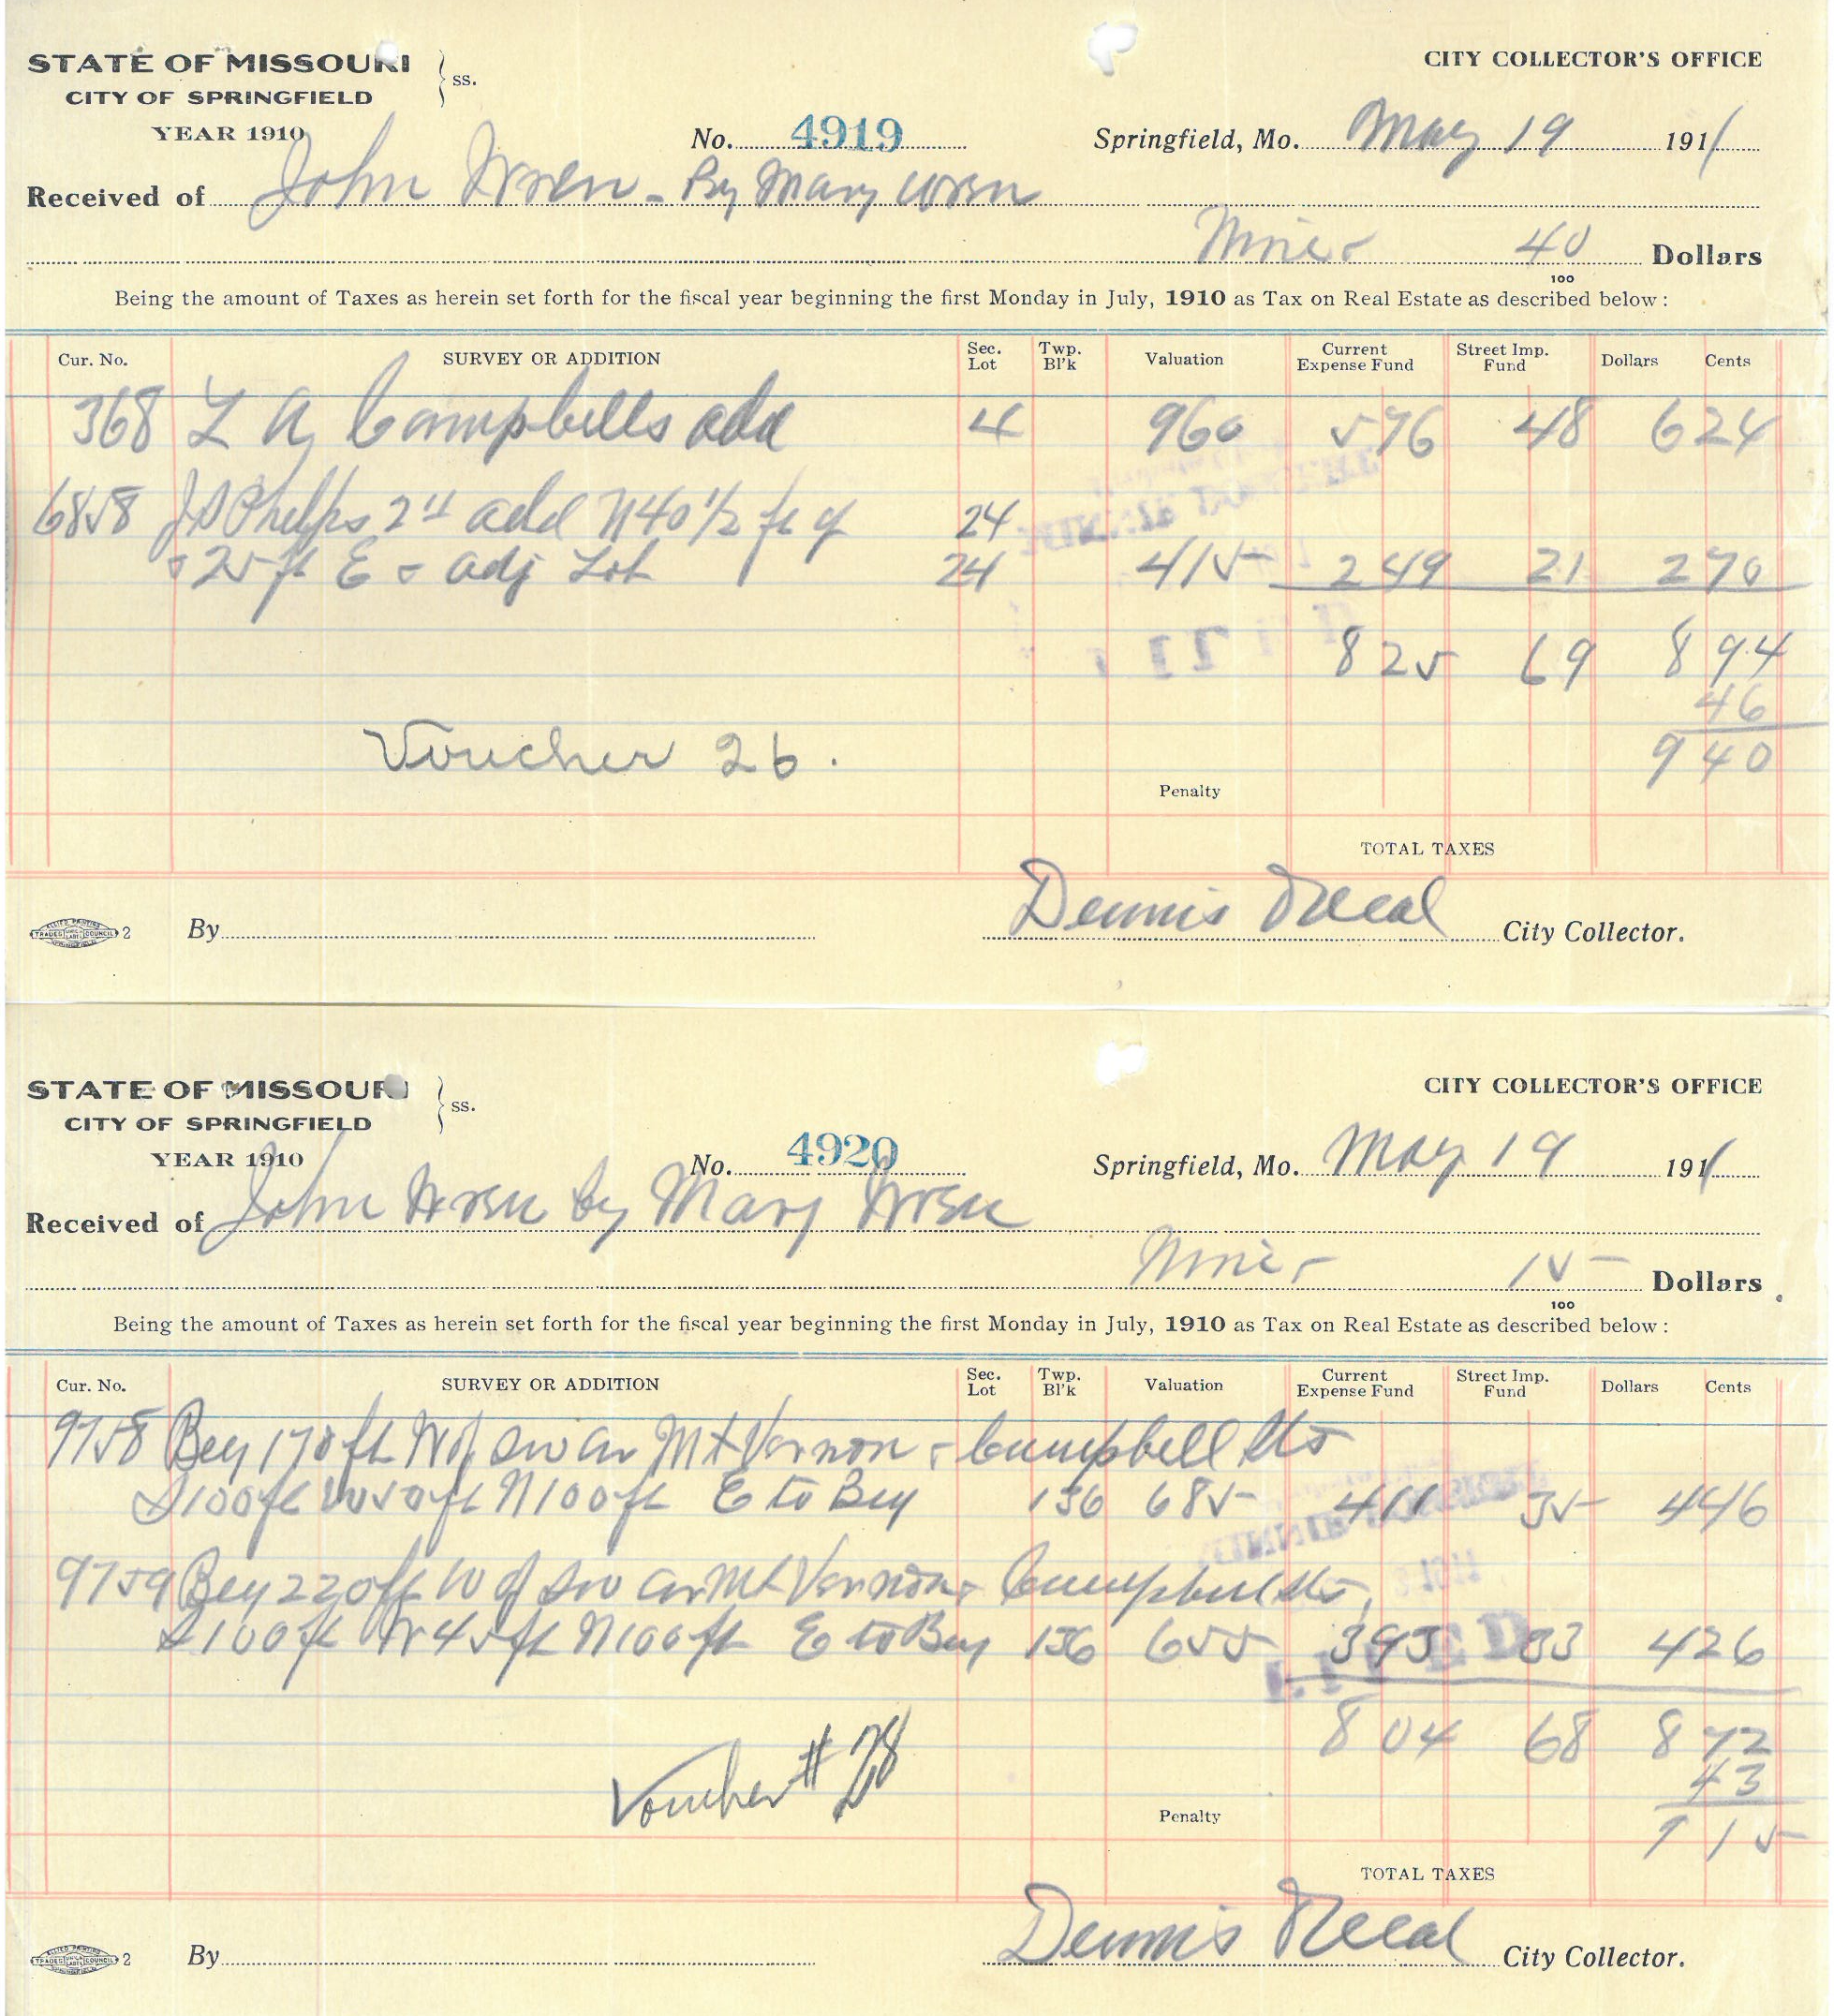 STATE OF MISSOURI } ss. CITY COLLECTOR'S OFFICE
CITY OF SPRINGFIELD
YEAR 1910 No. 4919 Springfield, Mo. May 19 1911
Received of John Wren - By Mary Wren
Nine - 40/100 Dollars
Being the amount of Taxes as herein set forth for the fiscal year beginning the first Monday in July, 1910 as Tax on Real Estate as described below:
Cur. No. SURVEY OR ADDITION Sec. Lot Twp. Bl'k Valuation Current Expense Fund Street Imp. Fund Dollars Cents
368 L A Campbells add 4 960 5 76 48 6 24
6858 J S Phelps 2d add N 40 1/2 ft of 24
& 25 ft E & adj Lot 24 415 2 49 21 2 70
8 25 69 8 94
46
Voucher 26. 9 40
Penalty
TOTAL TAXES
2 By Dennis Neal City Collector.
STATE OF MISSOURI } ss. CITY COLLECTOR'S OFFICE
CITY OF SPRINGFIELD
YEAR 1910 No. 4920 Springfield, Mo. May 19 1911
Received of John Wren by Mary Wren
Nine - 15/100 Dollars
Being the amount of Taxes as herein set forth for the fiscal year beginning the first Monday in July, 1910 as Tax on Real Estate as described below:
Cur. No. SURVEY OR ADDITION Sec. Lot Twp. Bl'k Valuation Current Expense Fund Street Imp. Fund Dollars Cents
9758 Beg 170 ft W of SW cor Mt Vernon & Campbell Sts
S 100 ft W 50 ft N 100 ft E to Beg 136 685 4 11 35 4 46
9759 Beg 220 ft W of SW cor Mt Vernon & Campbell Sts
S 100 ft W 45 ft N 100 ft E to Beg 136 655 3 93 33 4 26
8 04 68 8 72
43
Voucher # 28 9 15
Penalty
TOTAL TAXES
2 By Dennis Neal City Collector.